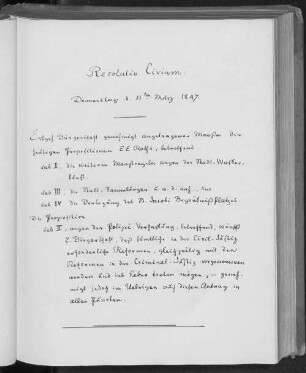 Resolutio Civium.
Donnerstag d. 11ten März 1847.
Erbges. Bürgerschaft genehmigt angetragener Maaßen die
heutigen Propositionen E E Raths, betreffend
sub I, die weiteren Maaßregeln wegen der Stadt-Wasser-
kunst.
sub III, die
sub IV die Verlegung des St. Jacobi Begräbnißplatzes
Die Proposition
sub II, wegen der Polizei-Verfassung, betreffend, wünscht
E. Bürgerschaft, daß sämtliche in der Civil-Justiz
erforderliche Reformen, gleichzeitig mit den
Reformen in der Criminal-Justiz vorgenommen
werden und ins Leben treten mögen, – geneh-
migt jedoch im Uebrigen auch diesen Antrag in
allen Puncten.